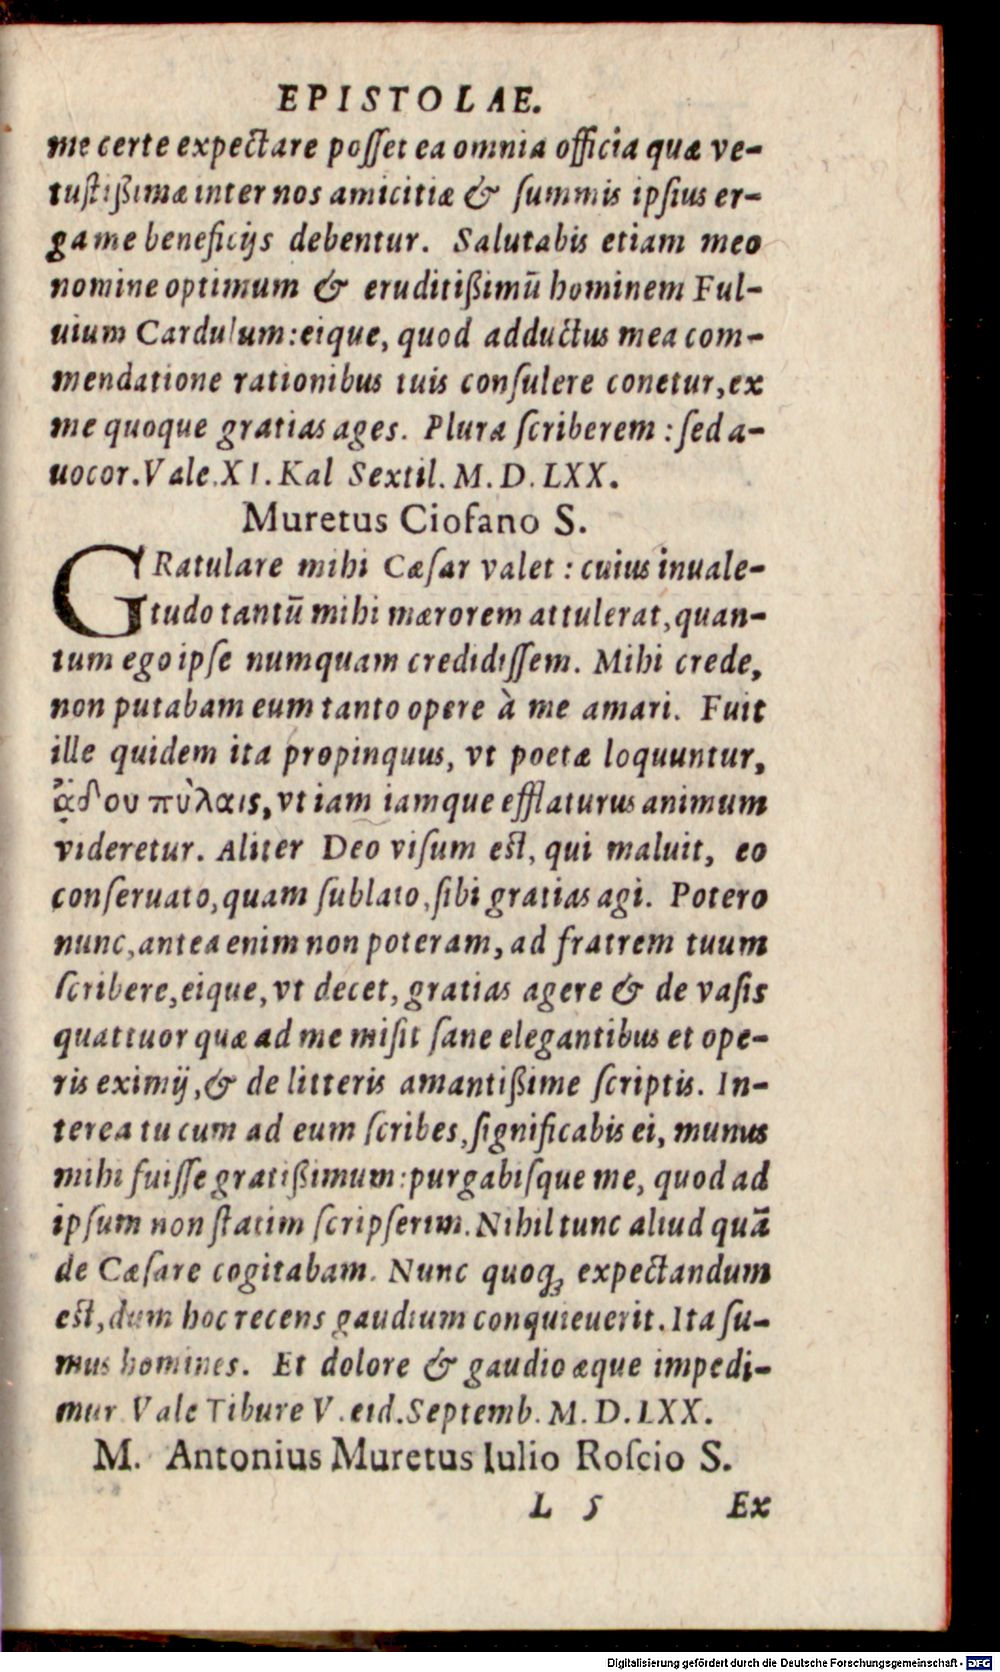 EPISTOLAE.
me certe expectare poſſet ea omnia officia quæ ve-
tuſtißimæ inter nos amicitiæ & ſummis ipſius er-
ga me beneficijs debentur. Salutabis etiam meo
nomine optimum & eruditißimū hominem Ful-
uium Cardulum: eique, quod adductus mea com-
mendatione rationibus tuis conſulere conetur, ex
me quoque gratias ages. Plura ſcriberem : ſed a-
uocor. Vale. XI. Kal Sextil. M. D. LXX.
Muretus Ciofano S.
GRatulare mihi Cæſar valet : cuius inuale-
tudo tantū mihi mærorem attulerat, quan-
tum ego ipſe numquam credidiſſem. Mihi crede,
non putabam eum tanto opere à me amari. Fuit
ille quidem ita propinquus, vt poetæ loquuntur,
ᾅδου πύλαις, vt iam iamque efflaturus animum
videretur. Aliter Deo viſum est, qui maluit, eo
conſeruato, quam ſublato, ſibi gratias agi. Potero
nunc, antea enim non poteram, ad fratrem tuum
ſcribere, eique, vt decet, gratias agere & de vaſis
quattuor quæ ad me miſit ſane elegantibus et ope-
ris eximij, & de litteris amantißime ſcriptis. In-
terea tu cum ad eum ſcribes, ſignificabis ei, munus
mihi fuiſſe gratißimum: purgabiſque me, quod ad
ipſum non ſtatim ſcripſerim. Nihil tunc aliud quā
de Cæſare cogitabam. Nunc quoq₃ expectandum
est, dum hoc recens gaudium conquieuerit. Ita ſu-
mus homines. Et dolore & gaudio æque impedi-
mur. Vale Tibure V. eid. Septemb. M. D. LXX.
M. Antonius Muretus Iulio Roſcio S.
L 5 Ex
Digitalisierung gefördert durch die Deutsche Forschungsgemeinschaft - DFG